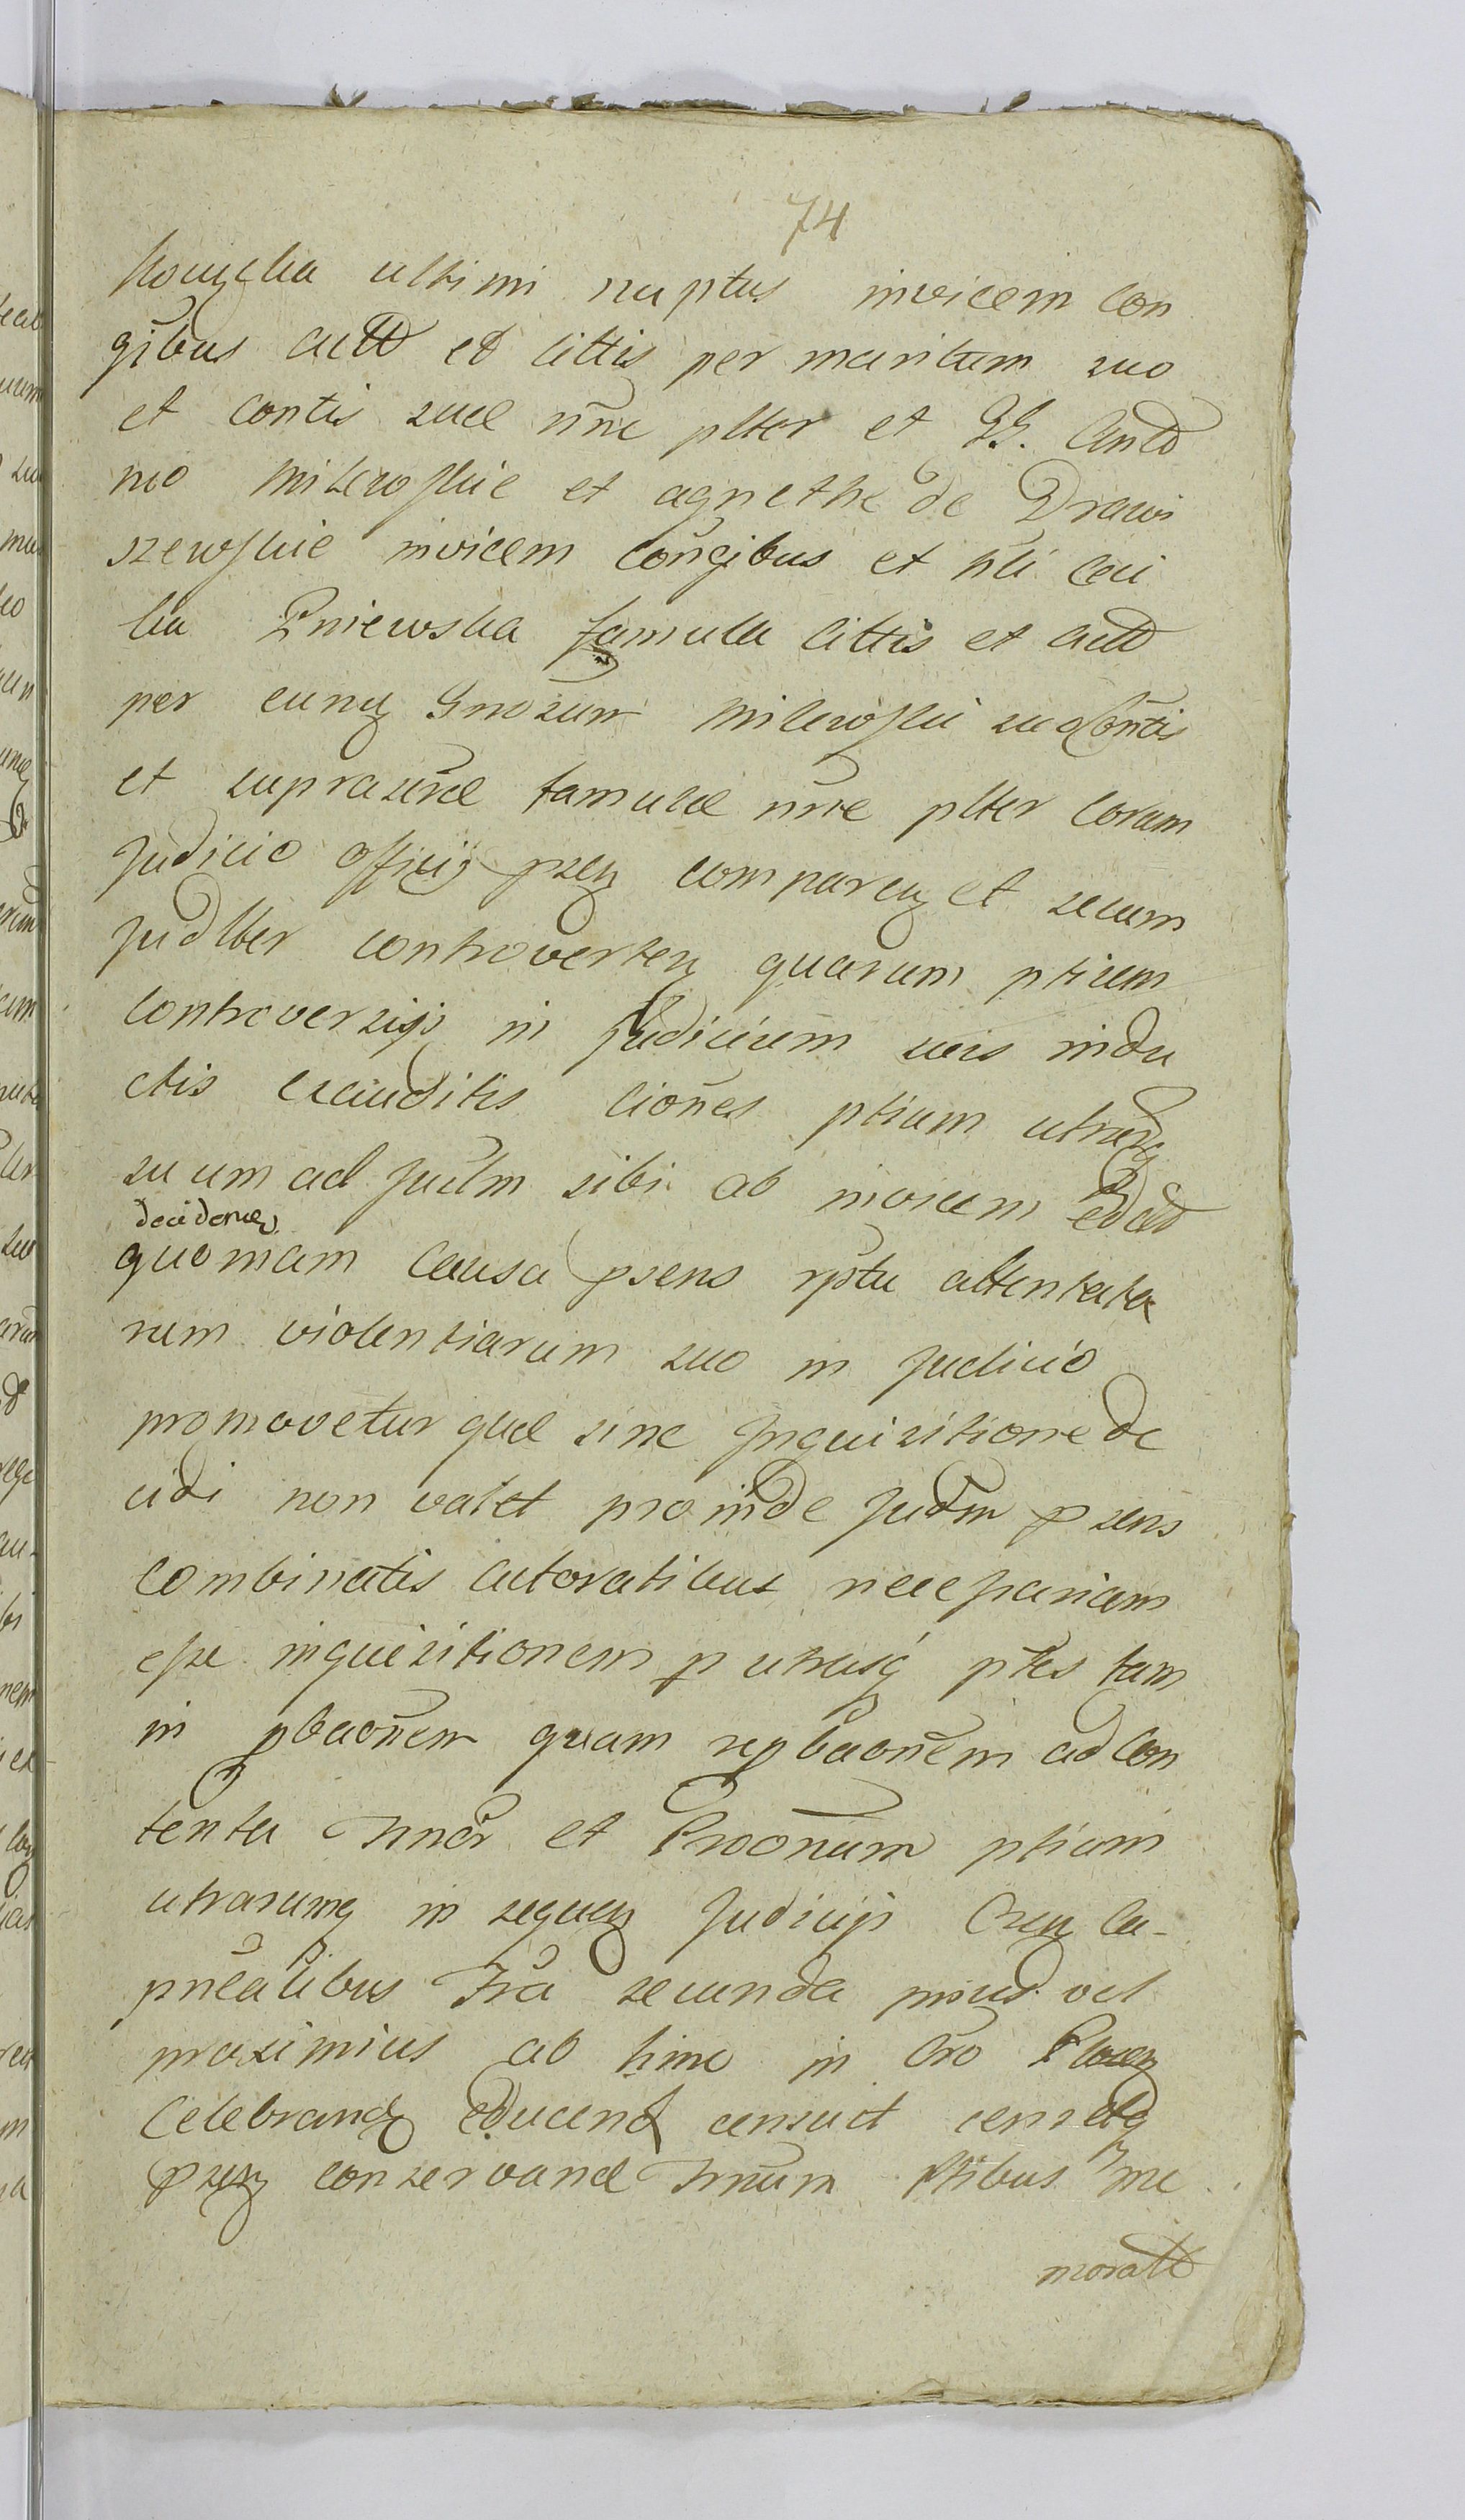 74
ultimi nuptus invicem con
gibus actt et cittis per maritum suo
et contis suae nnc plter et GG. Anto
nio Milewskie et agnethe de Drawi
szewskie invicem congibus et nli Ceci
lia Pniewska famula cittis et actt
per eunq Gnosum Milewski suo contis
et suprascrae famulae nnc plter coram
Judicio officij psen comparen et secum
Judlter controverten quarum ptium
controversijs in Judicium suis indu
ctis exauditis ptium
suum ad Judm sibi ab invicem
deciden
quoniam causa psens rptu attentata
rum violentiarum suo in Judicio
promovetur quae sine Inquisitione de
cidi non valet proinde Judm psens
combinatis cutoratibus necessariam
esse inquisitionem p utrasq ptes tam
in pbaonem quam repbaonem ad con
tenta Tmor et Proonum ptium
utrarumq in sequen Judicijs Cren ca-
pnealibus Fra secunda prius vel
proximius ab hinc in Cro
Celebrand educend censuit censetq
psen conservand Tmum Ptibus me
moratt